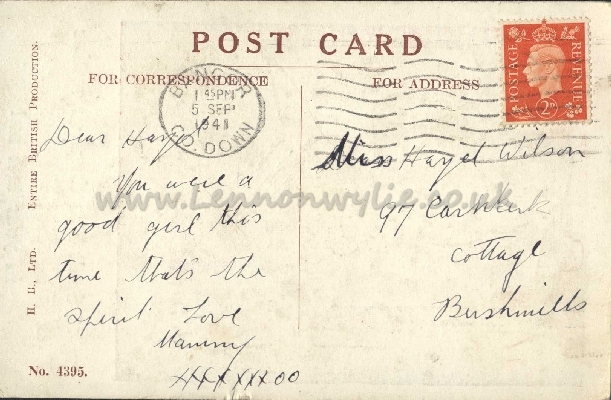 POST CARD
FOR CORRESPONDENCE
FOR ADDRESS
POSTAGE
REVENUE
2D
BANGOR
1 45 PM
5 SEP
1941
CO. DOWN
ENTIRE BRITISH PRODUCTION.
H. B., LTD.
Dear Hazel
You were a
good girl this
time thats the
spirit Love
Mammy
XXXXXXOO
Miss Hazel Wilson
97
cottage
Bushmills
www.Lennonwylie.co.uk
No. 4395.